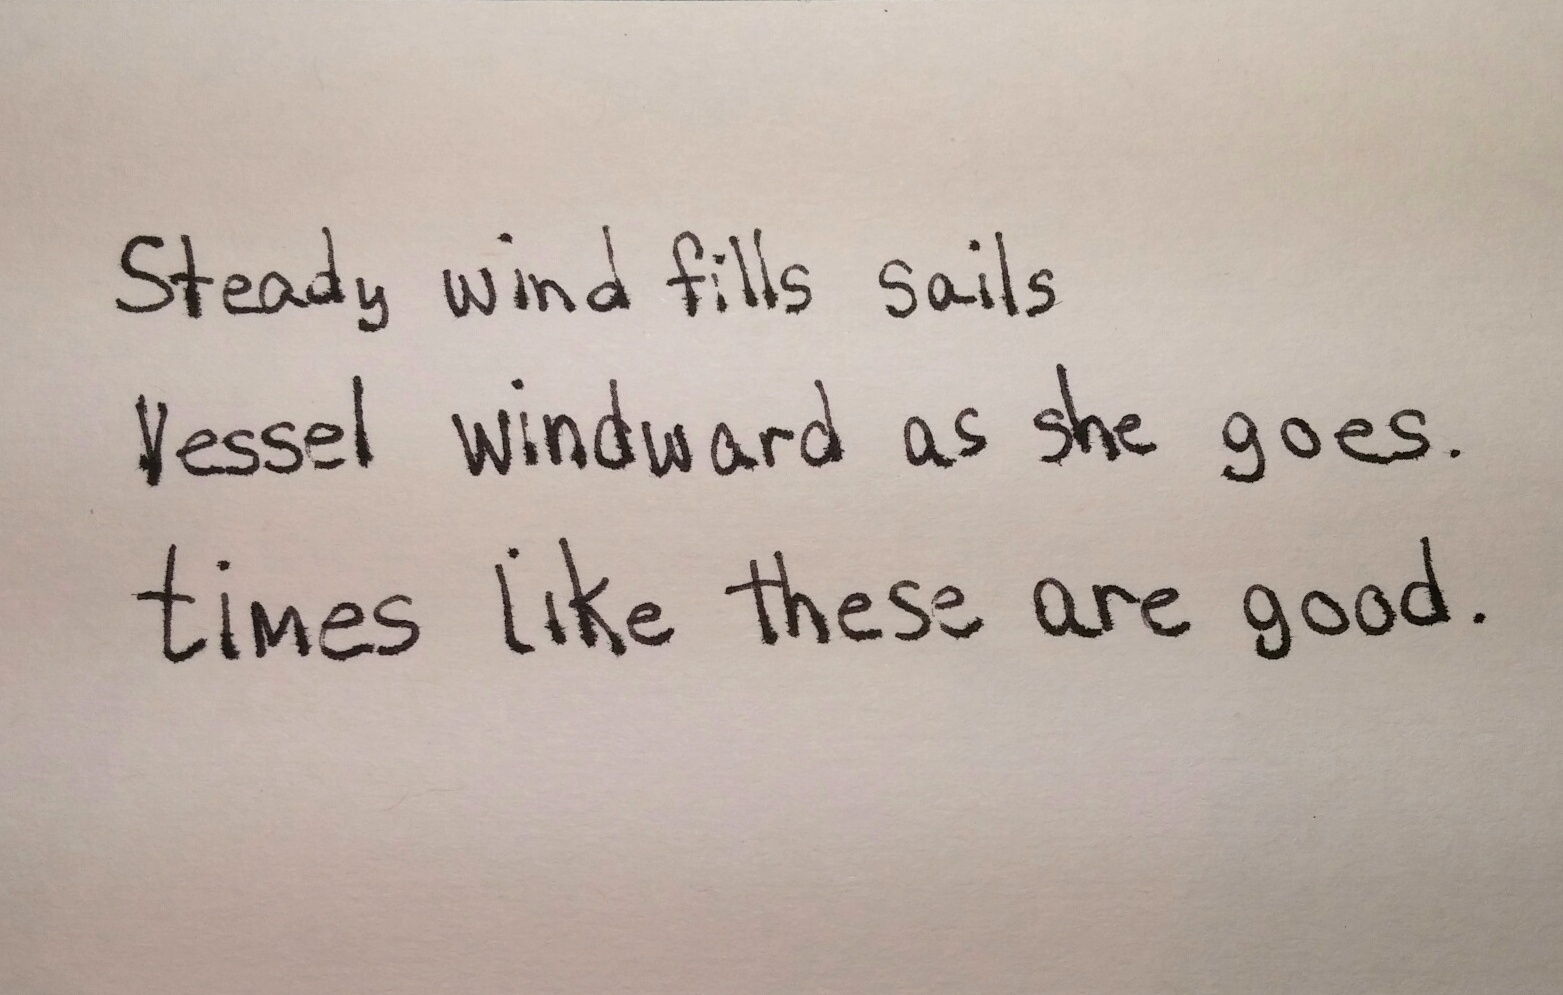 Steady wind fills sails
Vessel windward as she goes.
times like these are good.